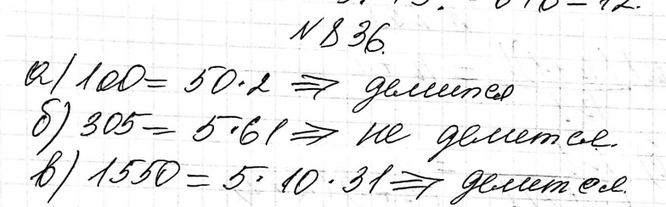 №836.
а) 100 = 50·2 ⇒ делится
б) 305 = 5·61 ⇒ не делится.
в) 1550 = 5·10·31 ⇒ делится.